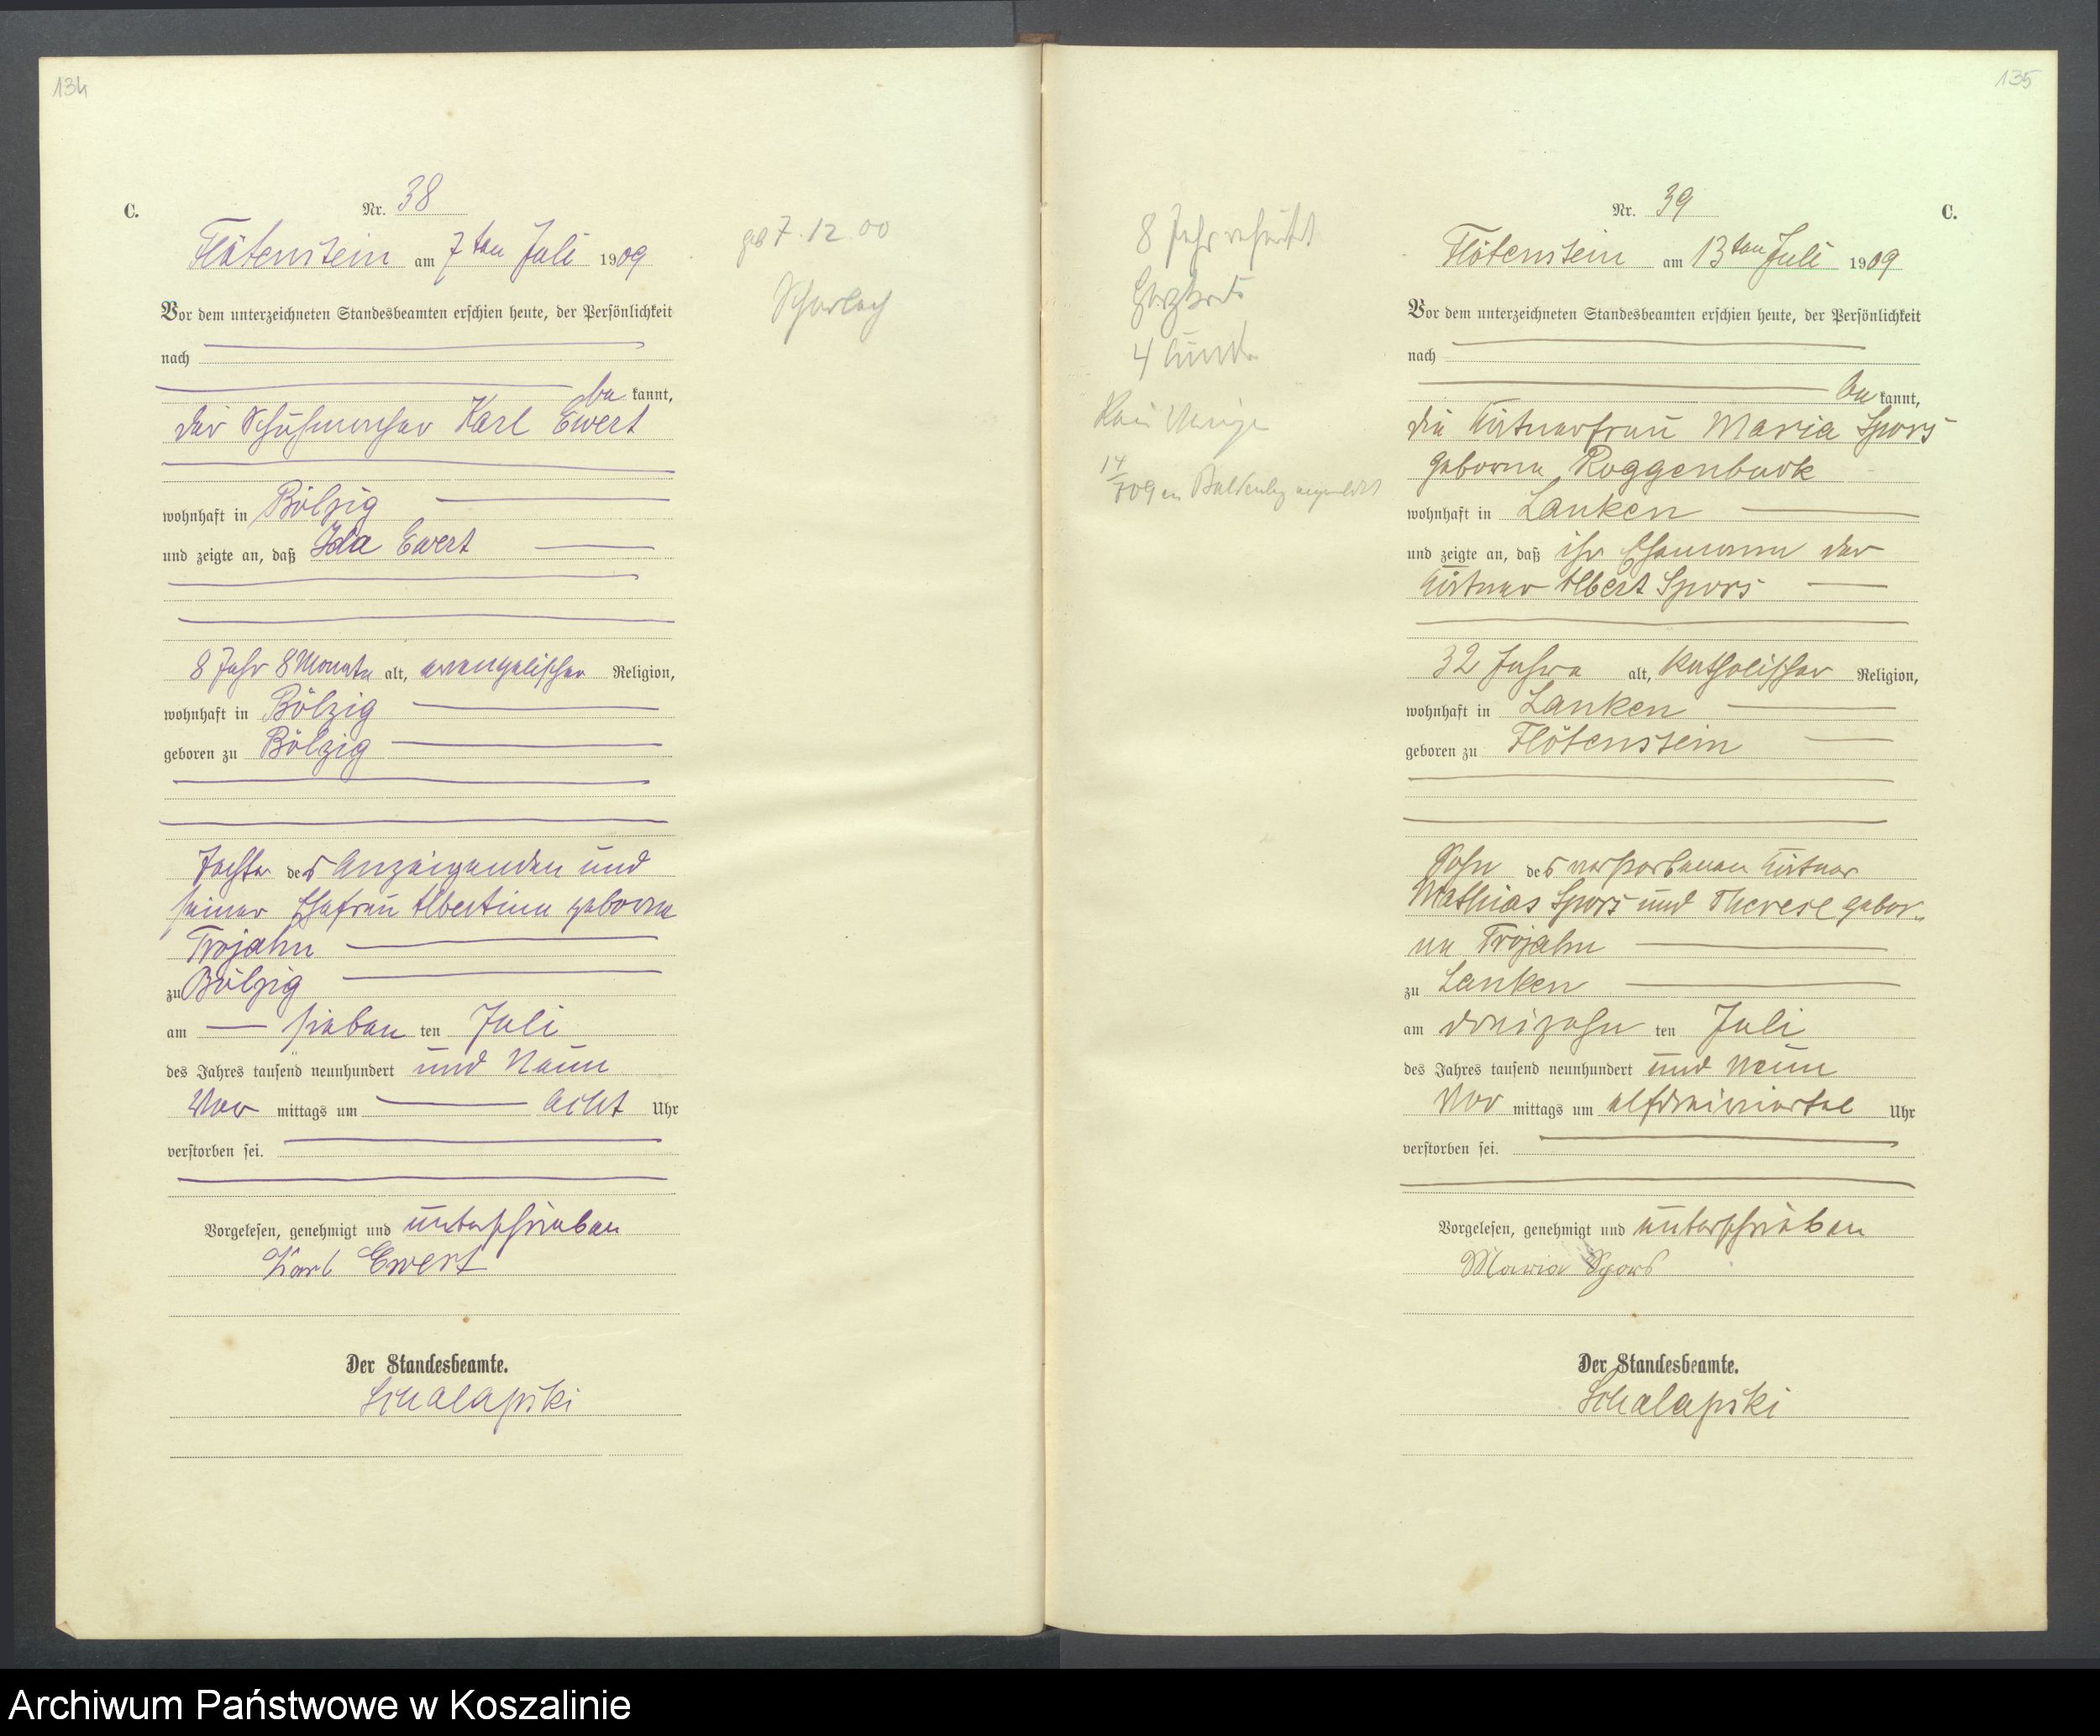 134
C.
Nr. 38
Flötenstein am 7ten Juli 1909
Vor dem unterzeichneten Standesbeamten erschien heute, der Persönlichkeit
nach
be kannt,
der Schuhmacher Karl Ewert
wohnhaft in Bölzig
und zeigte an, daß Ida Ewert
8 Jahr 8 Monate alt, evangelischer Religion,
wohnhaft in Bölzig
geboren zu Bölzig
Tochter des Anzeigenden und
seiner Ehefrau Albertine geborne
Trojahn
zu Bölzig
am sieben ten Juli
des Jahres tausend neunhundert und Neun
Vor mittags um Acht Uhr
verstorben sei.
Vorgelesen, genehmigt und unterschrieben
Karl Ewert
Der Standesbeamte.
Schalapski
geb 7.12.00
Scharlach
135
8 Jahr
4 Kinder
Kein
14
7 09
C.
Nr. 39
Flötenstein am 13ten Juli 1909
Vor dem unterzeichneten Standesbeamten erschien heute, der Persönlichkeit
nach
be kannt,
die Kätnerfrau Maria Spors
geborne Roggenbuck
wohnhaft in Lanken
und zeigte an, daß ihr Ehemann der
Kätner Albert Spors
32 Jahre alt, katholischer Religion,
wohnhaft in Lanken
geboren zu Flötenstein
Sohn des verstorbenen Kätner
Mathias Spors und Therese gebor-
ne Trojahn
zu Lanken
am dreizehn ten Juli
des Jahres tausend neunhundert und Neun
Vor mittags um elfdreiviertel Uhr
verstorben sei.
Vorgelesen, genehmigt und unterschrieben
Maria Spors
Der Standesbeamte.
Schalapski
Archiwum Państwowe w Koszalinie